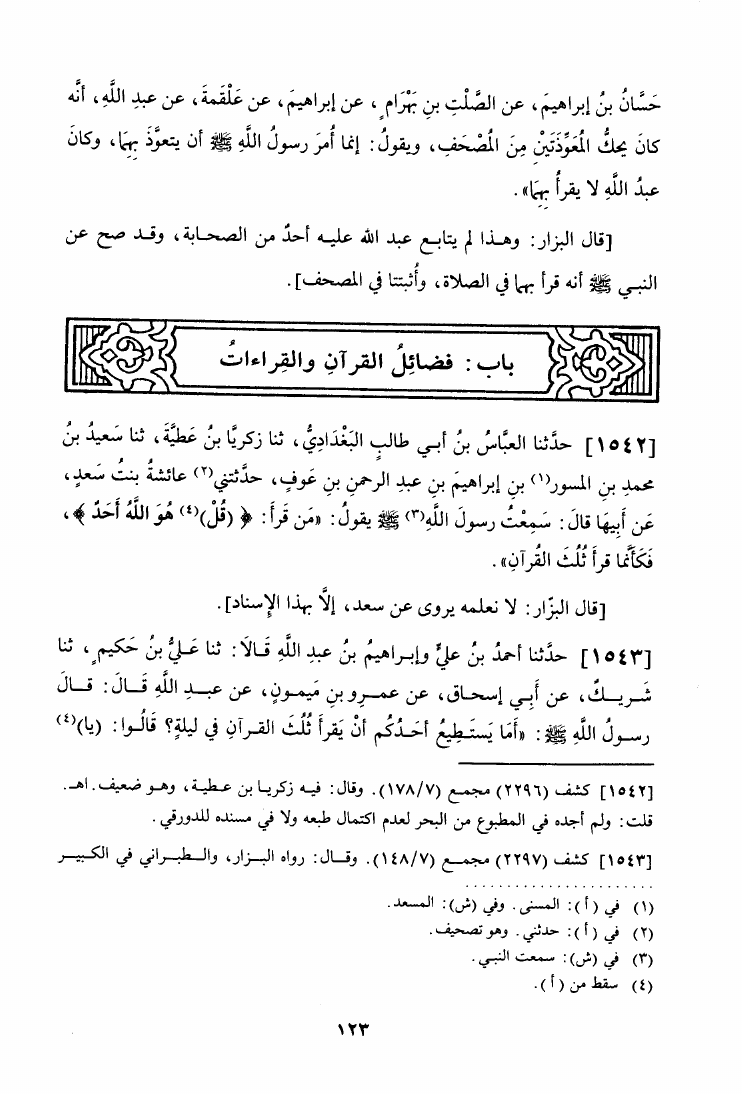 حَسَّانُ بنُ إبراهيمَ، عن الصَّلْتِ بنِ بَهْرَامٍ، عن إبراهيمَ، عن عَلْقَمةَ، عن عبدِ اللَّهِ، أنَّه
كانَ يحكُّ المُعَوِّذَتَيْنِ مِنَ المُصْحَفِ، ويقولُ: إنما أُمرَ رسولُ اللَّهِ ﷺ أن يتعوَّذَ بِهِمَا، وكانَ
عبدُ اللَّهِ لا يقرأُ بِهِمَا».
[قال البزار: وهذا لم يتابع عبد الله عليه أحدٌ من الصحابة، وقد صح عن
النبي ﷺ أنه قرأ بهما في الصلاة، وأُثبتتا في المصحف].
باب: فضائِلُ القرآنِ والقِراءاتُ
[١٥٤٢] حدَّثنا العبَّاسُ بنُ أبي طالبٍ البَغْدَادِيُّ، ثنا زكريَّا بنُ عَطيَّةَ، ثنا سَعيدُ بنُ
محمدِ بنِ المسور(١) بنِ إبراهيمَ بنِ عبدِ الرحمنِ بنِ عَوفٍ، حدَّثتني(٢) عائشةُ بنتُ سَعدٍ،
عَن أبِيهَا قالَ: سَمِعْتُ رسولَ اللَّهِ(٣) ﷺ يقولُ: «مَن قَرأَ: ﴿ (قُلْ)(٤) هُوَ اللَّهُ أَحَدٌ ﴾،
فَكَأنَّما قرأَ ثُلُثَ القُرآنِ».
[قال البزّار: لا نعلمه يروى عن سعد، إلَّا بهذا الإِسناد].
[١٥٤٣] حدَّثنا أحمدُ بنُ عليٍّ وإبراهيمُ بنُ عبدِ اللَّهِ قَالَا: ثنا عَليُّ بنُ حَكيمٍ، ثنا
شَريكٌ، عن أَبي إسحاق، عن عمرِو بنِ مَيمونٍ، عن عبدِ اللَّهِ قَالَ: قالَ
رسولُ اللَّهِ ﷺ: «أَمَا يَستَطِيعُ أحَدُكُم أنْ يَقرأَ ثُلُثَ القرآنِ في ليلةٍ؟ قَالُوا: (يا)(٤)
[١٥٤٢] كشف (٢٢٩٦) مجمع (١٧٨/٧). وقال: فيه زكريا بن عطية، وهو ضعيف. اهـ.
قلت: ولم أجده في المطبوع من البحر لعدم اكتمال طبعه ولا في مسنده للدورقي.
[١٥٤٣] كشف (٢٢٩٧) مجمع (١٤٨/٧). وقال: رواه البزار، والطبراني في الكبير
(١) في (أ): المسنى. وفي (ش): المسعد.
(٢) في (أ): حدثني. وهو تصحيف.
(٣) في (ش): سمعت النبي.
(٤) سقط من (أ).
١٢٣